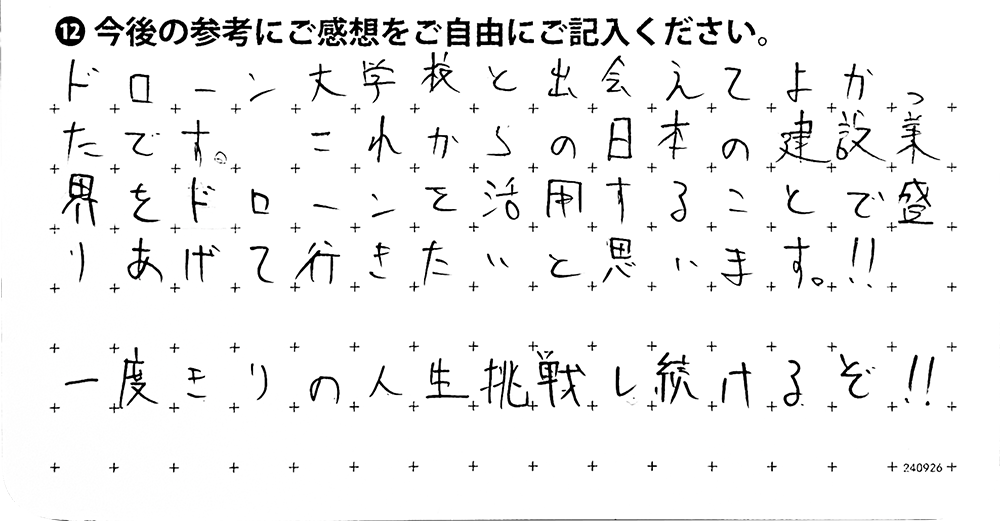 ⓬ 今後の参考にご感想をご自由にご記入ください。
ドローン大学校と出会えてよかっ
たです。 これからの日本の建設業
界をドローンを活用することで盛
りあげて行きたいと思います。!!
一度きりの人生挑戦し続けるぞ!!
240926